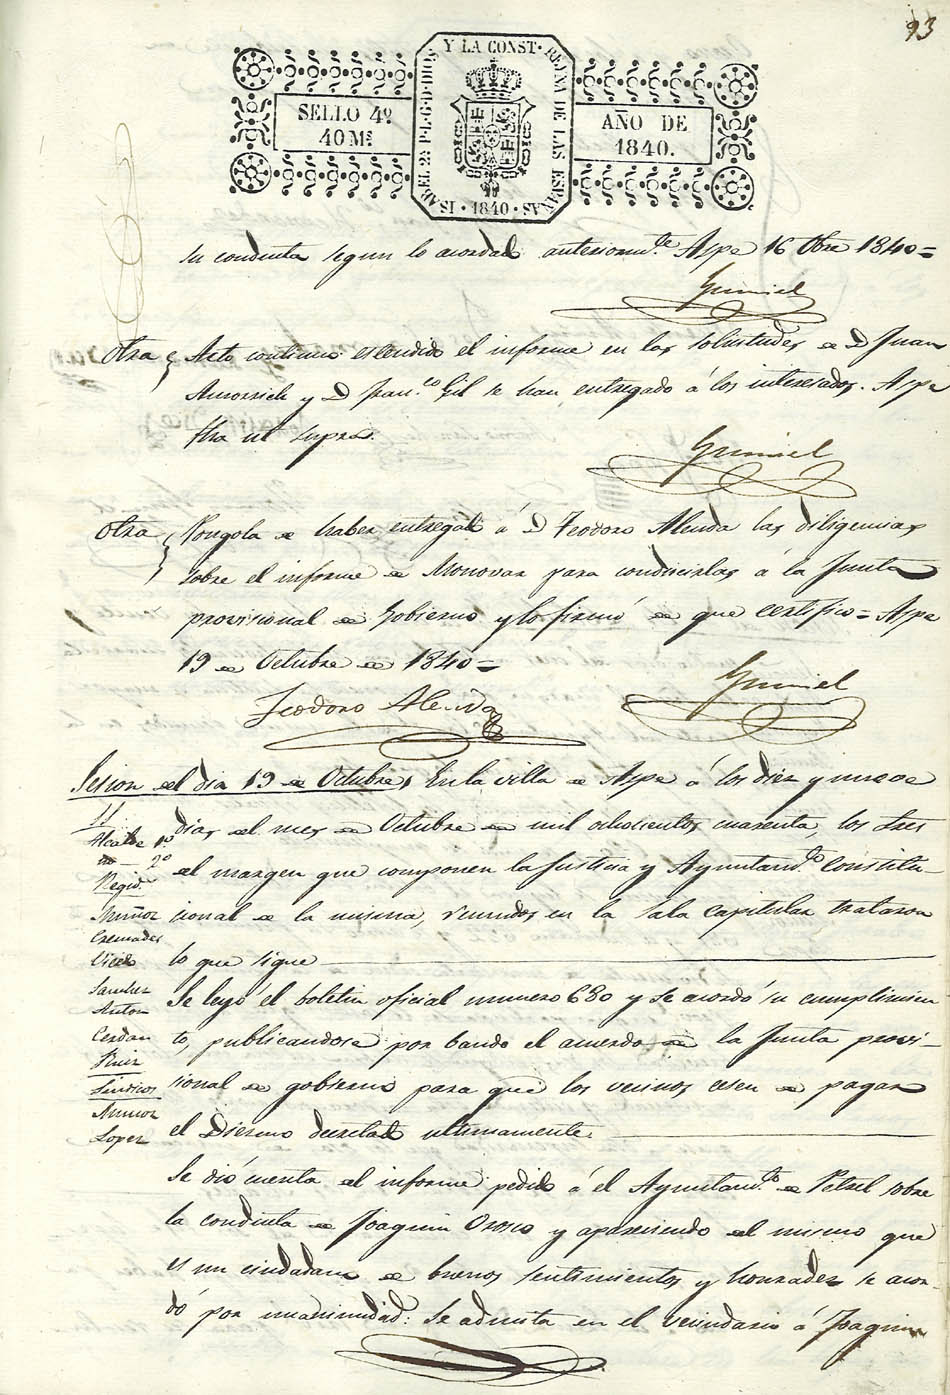 93
SELLO 4º
40 Ms
ISABEL 2ª P. L. G. D. DIOS Y LA CONST. REYNA DE LAS ESPAÑAS
1840
AÑO DE
1840.
su conducta segun lo acordado anteriormte. Aspe 16 Obre 1840=
Gumiel
Otra Acto continuo estendido el informe en las solicitudes de D Juan
y D Franco. Gil se han entregado á los interesados. Aspe
fha ut supra.
Gumiel
Otra Pongola de haber entregado á D Teodoro Alenda las diligencias
sobre el informe de Monovar para conducirlas á la Junta
provisional de Gobierno y lo firmó de que certifico= Aspe
19 de Octubre de 1840=
Teodoro Alenda
Gumiel
Sesion del dia 19 de Octubre, En la villa de Aspe á los diez y nueve
dias del mes de Octubre de mil ochocientos cuarenta, los Sres
del margen que componen la Justicia y Ayuntamto. Constitu-
cional de la misma, reunidos en la sala capitular trataron
lo que sigue
SS
Alcalde 1º
2º
Regid.
Muñoz
Cremades
Vicedo
Sanchez
Anton
Cerdan
Ruiz
Sindicos
Muñoz
Lopez
Se leyó el boletin oficial numero 680 y se acordó su cumplimien
to, publicandose por bando el acuerdo de la Junta provi-
sional de gobierno para que los vecinos cesen de pagar
el Diezmo decretado ultimamente.
Se dió cuenta del informe pedido á el Ayuntamto. de Petrel sobre
la conducta de Joaquin Orosco y apareciendo del mismo que
es un ciudadano de buenos sentimientos y honradez se acor
dó por unanimidad: Se admita en el vecindario á Joaquin